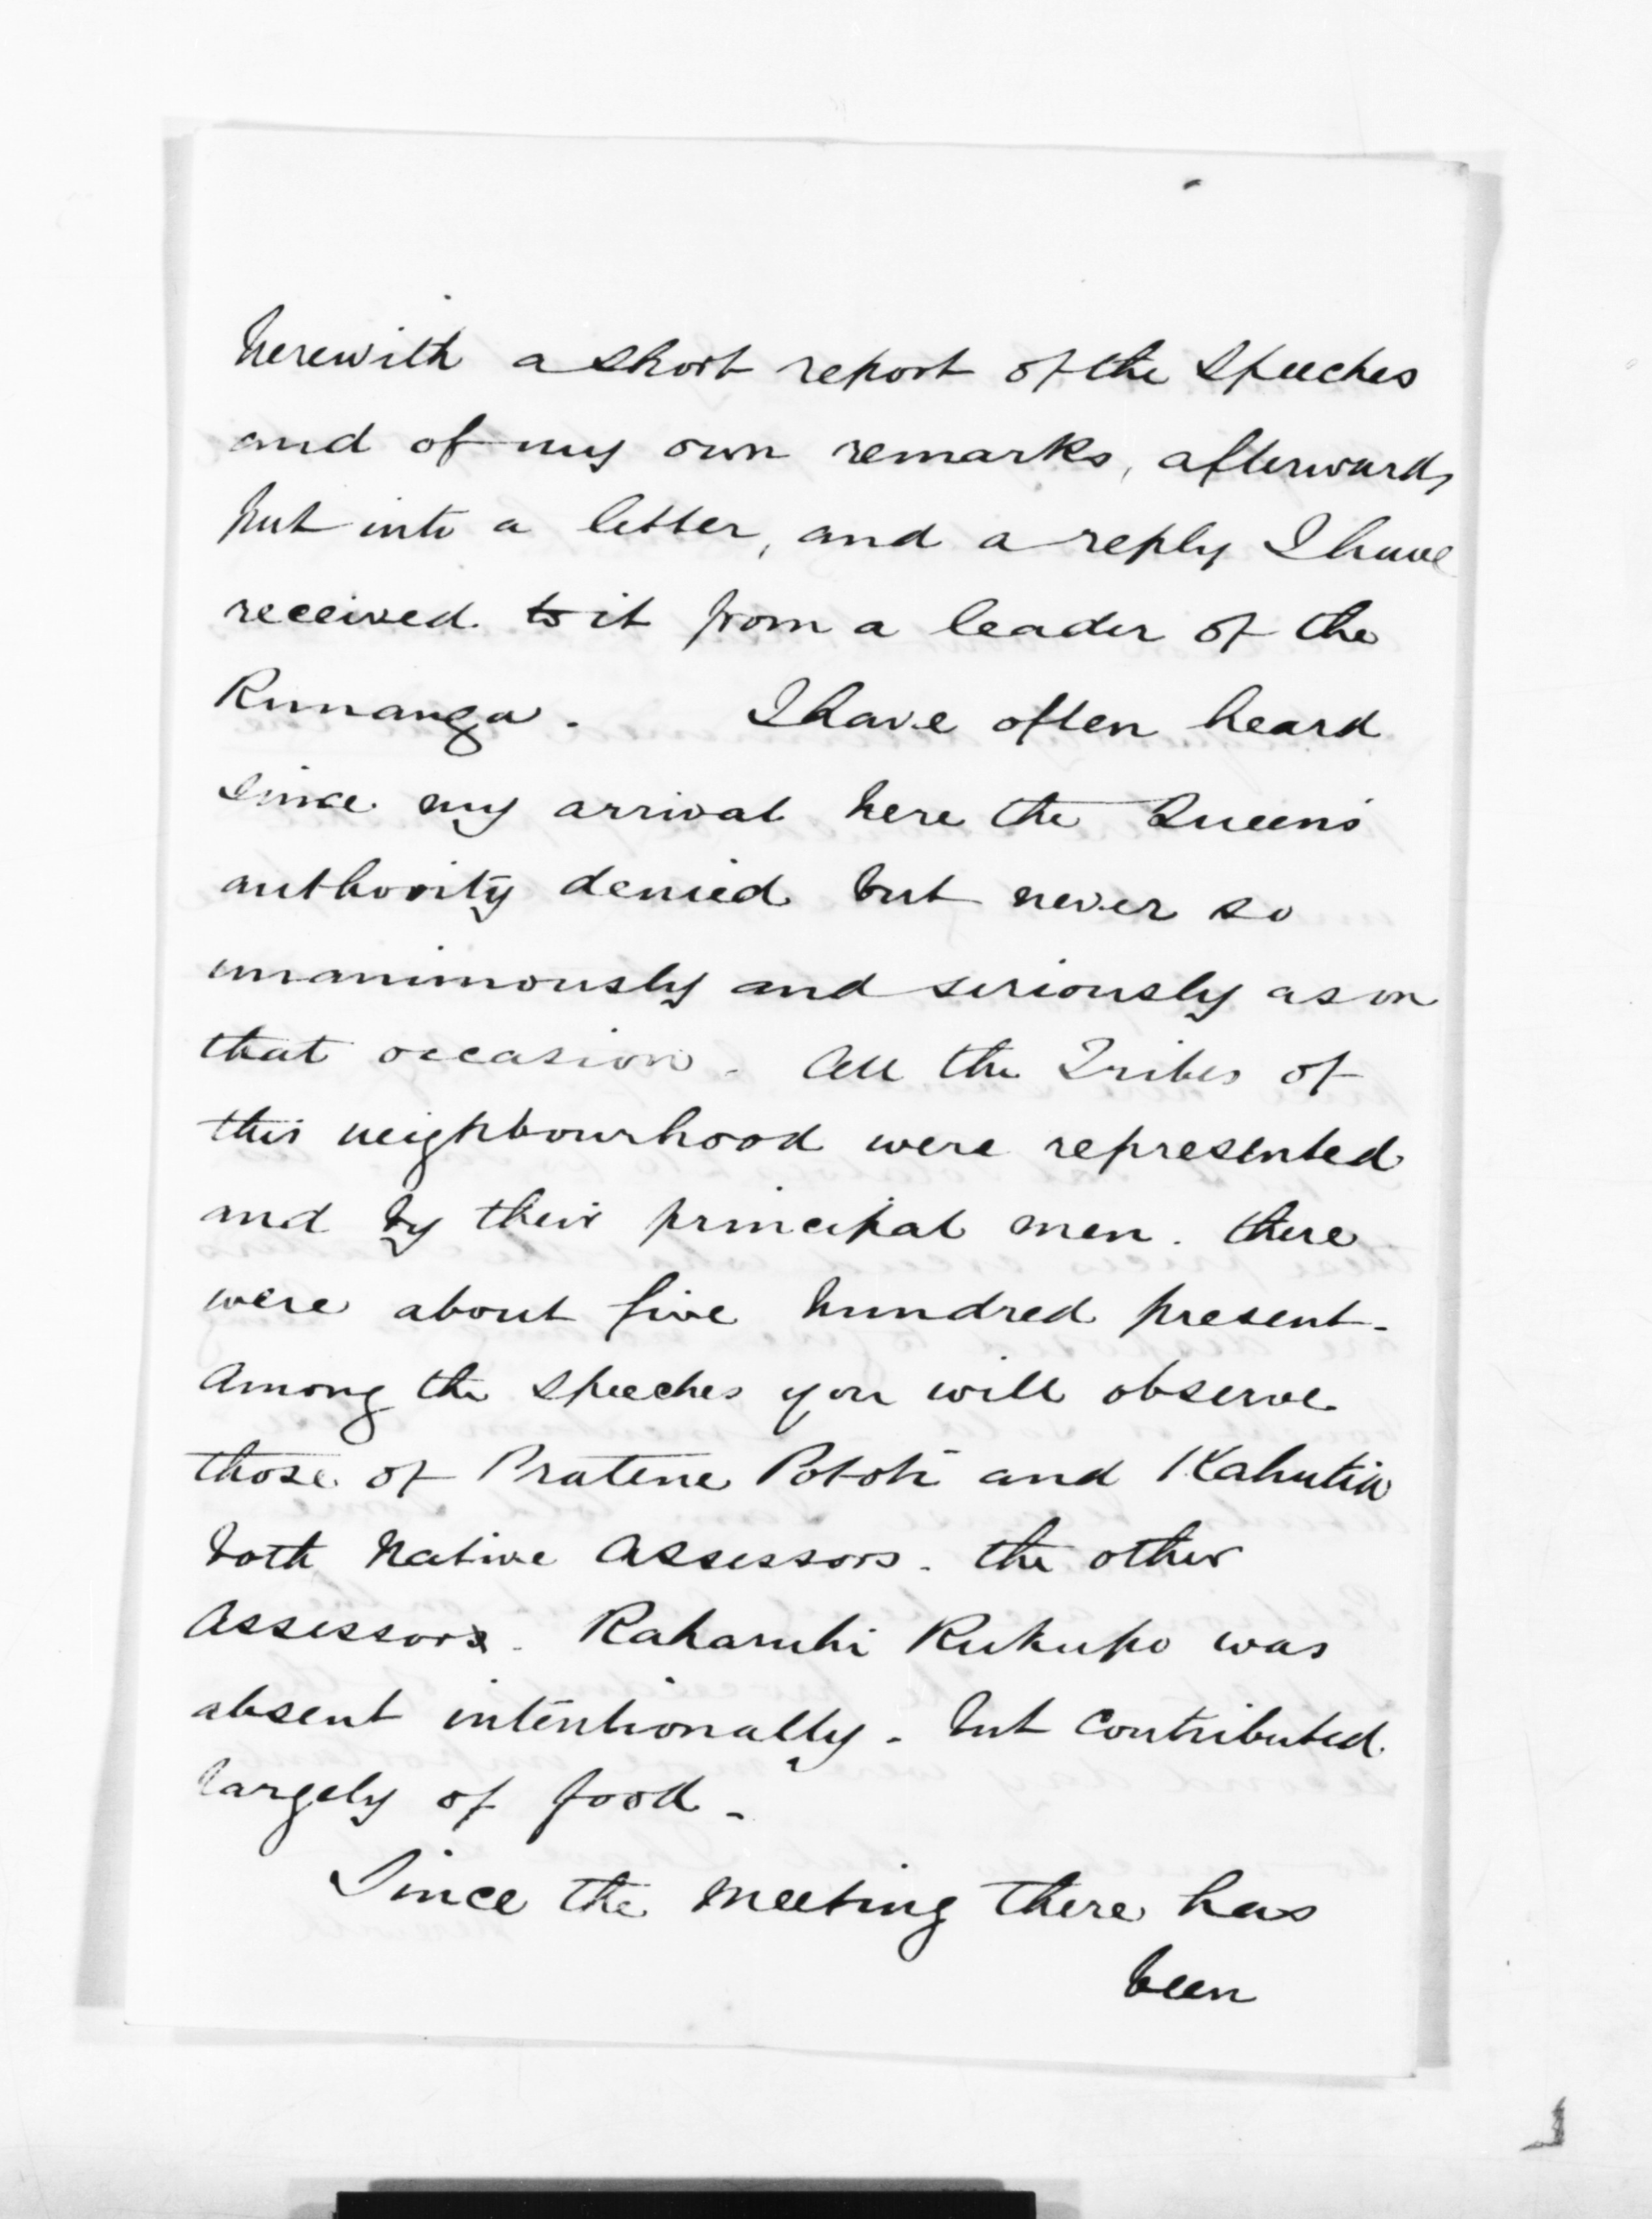 herewith a short report of the speeches
and of my own remarks, afterwards
put into a letter, and a reply I have
received to it from a leader of the
Runanga. I have often heard
since my arrival here the Queen's
authority denied but never so
unanimously and seriously as on
that occasion. All the Tribes of
this neighbourhood were represented
and by their principal men. there
were about five hundred present.
Among the speeches you will observe
those of Pratene Pototi and Kahutia
both Native Assessors. the other
Assessors. Raharuhi Rukupo was
absent intentionally. but contributed
largely of food.
Since the meeting there has
been